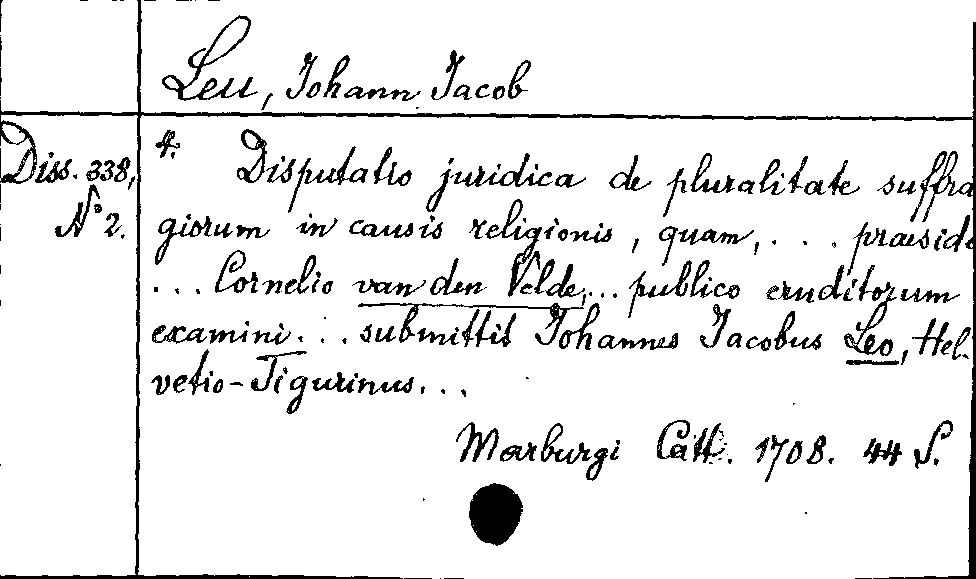 Leu, Johann Jacob
Diss. 338,
No 2.
4. Disputatio juridica de pluralitate suffra
giorum in causis religionis, quam, ... praeside
... Cornelio van den Velde, ... publico eruditorum
examini ... submittit Johannes Jacobus Leo, Hel-
vetio-Tigurinus ...
Marburgi Catt. 1708. 44 S.